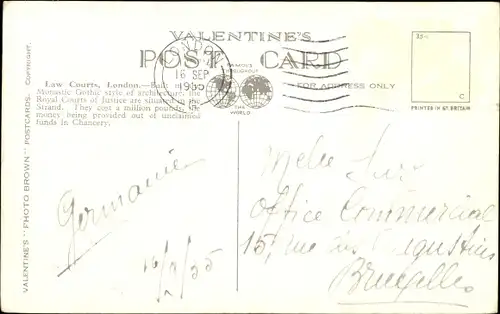 VALENTINE'S
POST CARD
LONDON
16 SEP
1935
FAMOUS
THROUGHOUT
THE
WORLD
FOR ADDRESS ONLY
35–
C
PRINTED IN GT. BRITAIN
Law Courts, London.—Built in the
Monastic Gothic style of architecture, the
Royal Courts of Justice are situated in the
Strand. They cost a million pounds, the
money being provided out of unclaimed
funds in Chancery.
VALENTINE'S "PHOTO BROWN" POSTCARDS. COPYRIGHT.
Germanie
16/9/35
Office Commercial
15, rue des Augustins
Bruxelles